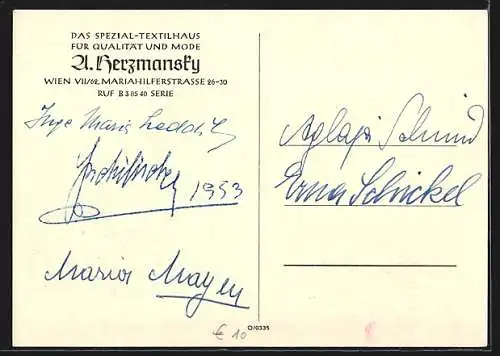 DAS SPEZIAL-TEXTILHAUS
FÜR QUALITÄT UND MODE
A. Herzmansky
WIEN VII/62, MARIAHILFERSTRASSE 26-30
RUF B 3 85 40 SERIE
Inge Maria
1953
Maria Mayer
Aglaja Schmid
Erna Schickel
€ 10
O/0335